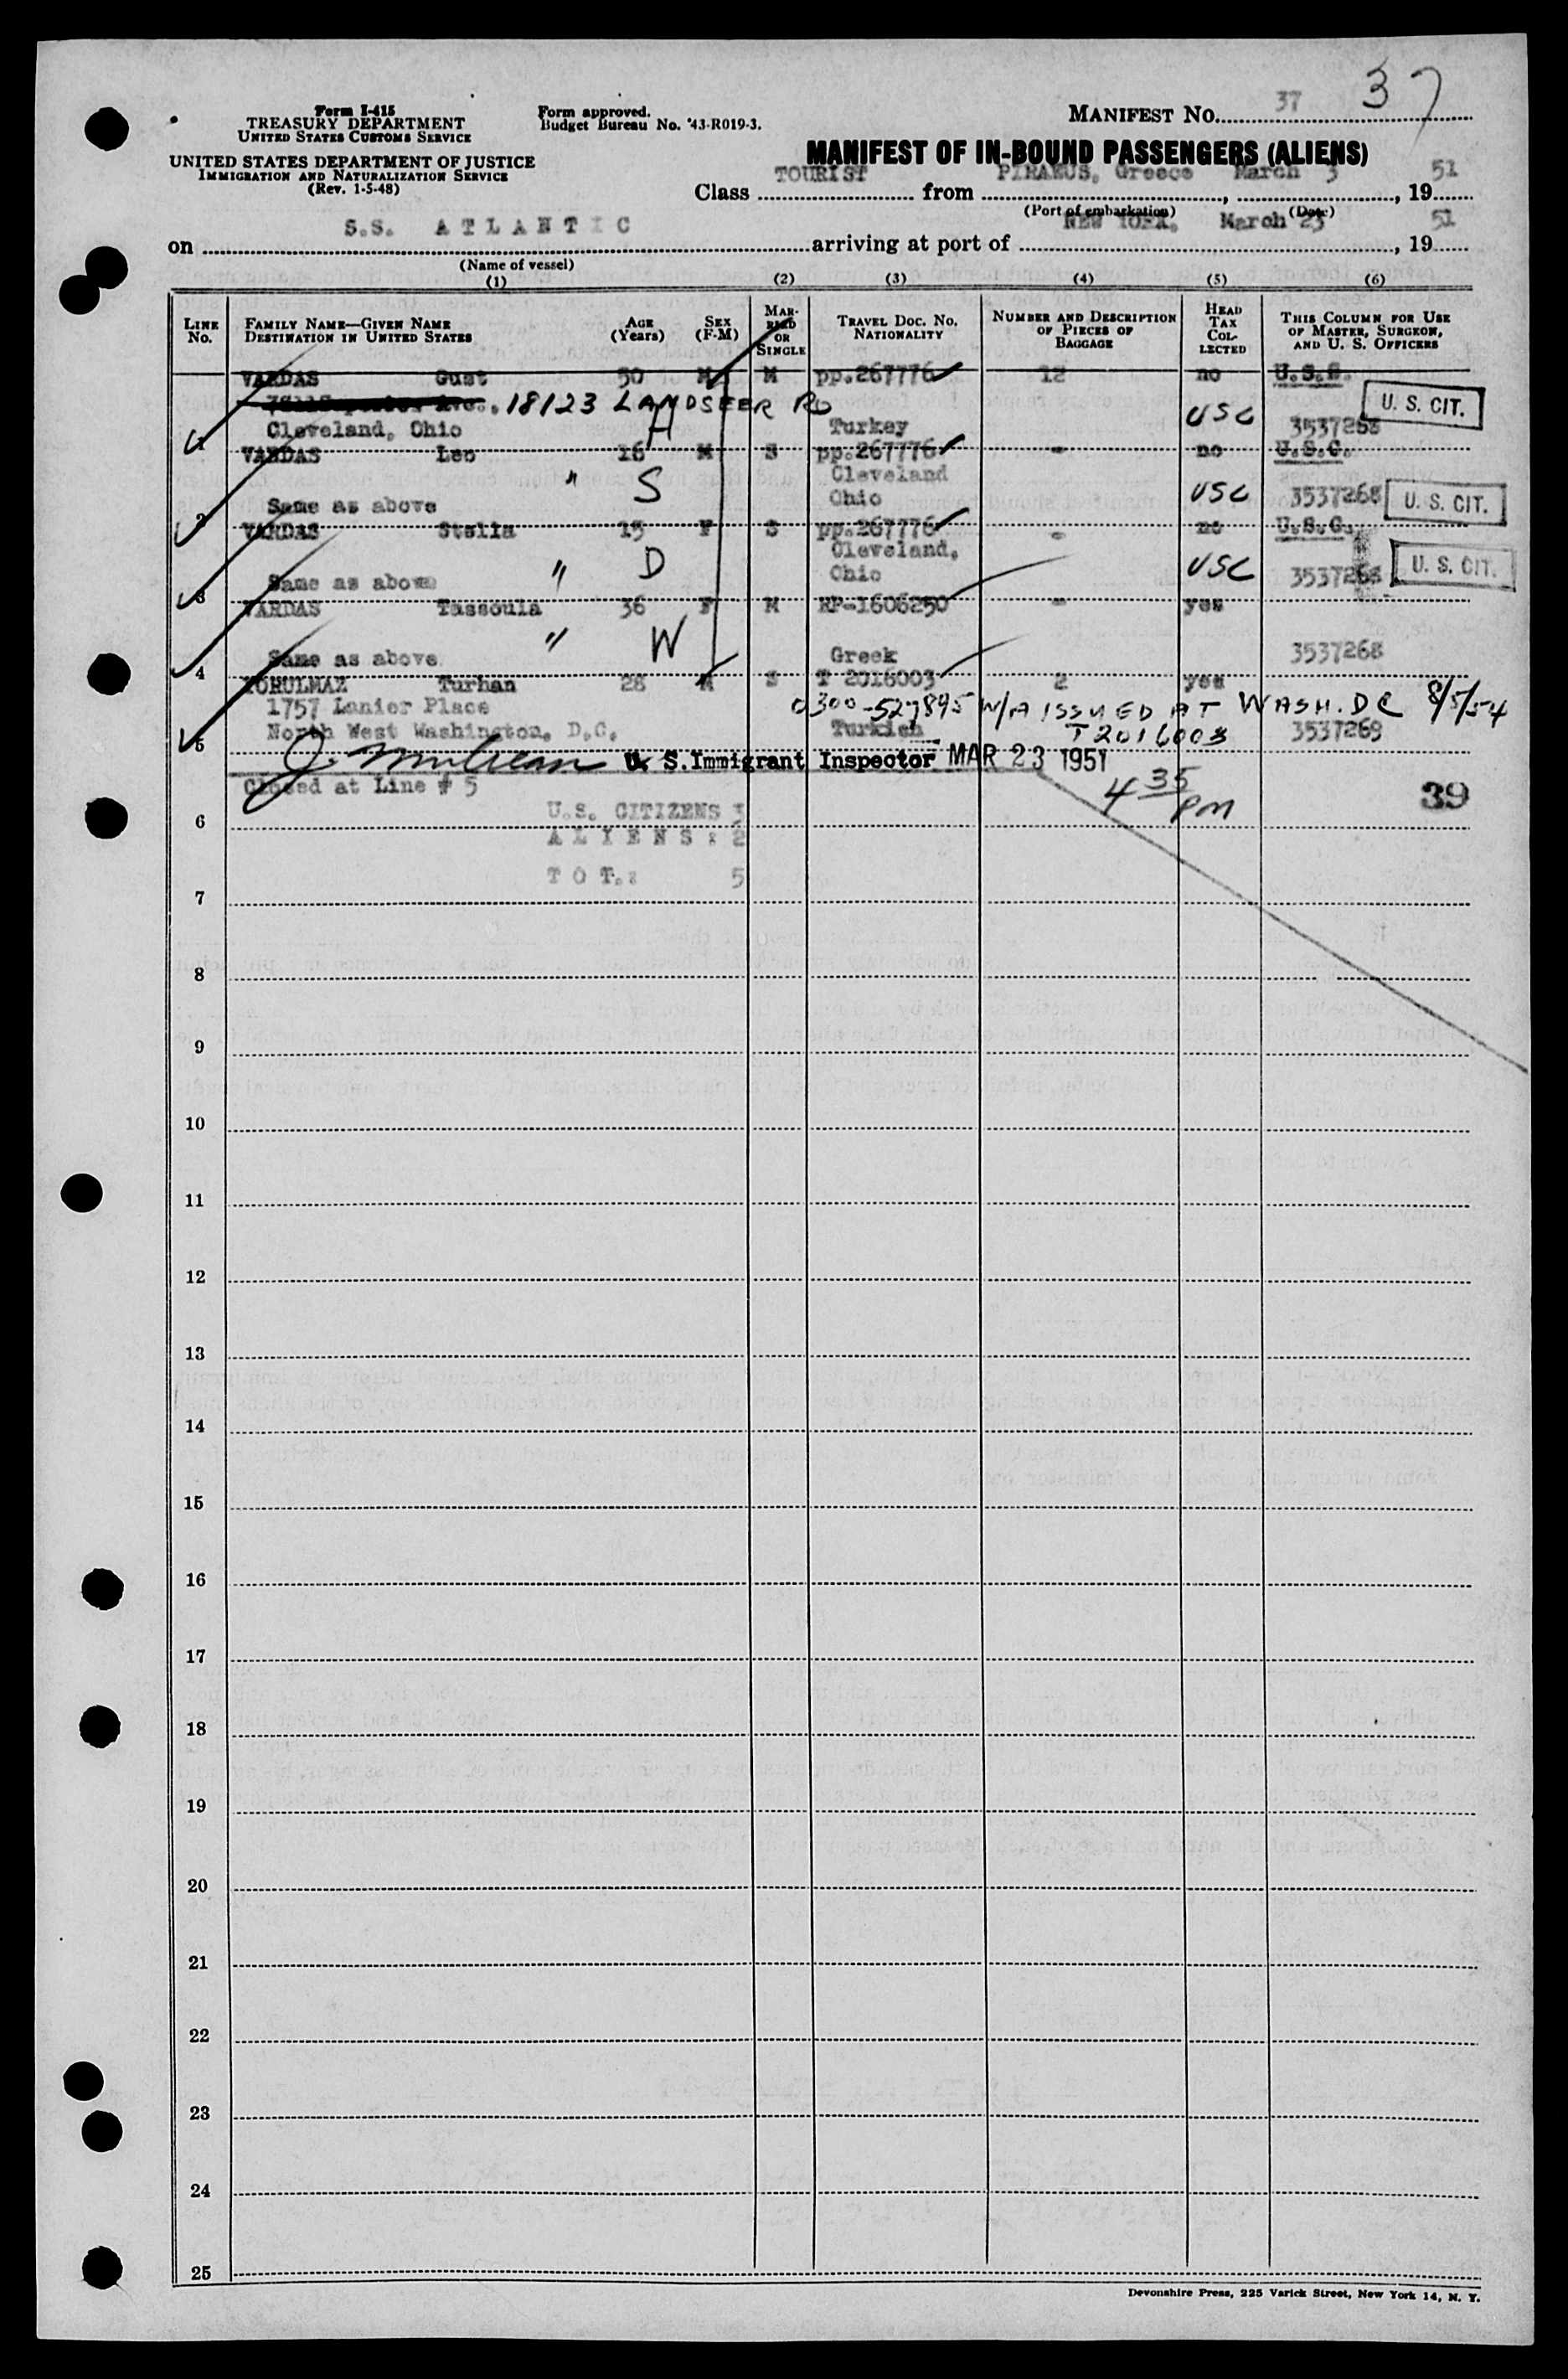 37
Form I-415
TREASURY DEPARTMENT
UNITED STATES CUSTOMS SERVICE
UNITED STATES DEPARTMENT OF JUSTICE
IMMIGRATION AND NATURALIZATION SERVICE
(Rev. 1-5-48)
Form approved.
Budget Bureau No. 43-R019-3.
MANIFEST No. 37
MANIFEST OF IN-BOUND PASSENGERS (ALIENS)
Class TOURIST from PIRAEUS, Greece March 3, 19 51
(Port of embarkation) (Date)
on S.S. ATLANTIC arriving at port of NEW YORK, March 23, 19 51
(Name of vessel)
(1) (2) (3) (4) (5) (6)
LINE No. FAMILY NAME—GIVEN NAME DESTINATION IN UNITED STATES AGE (Years) SEX (F-M) MARRIED OR SINGLE TRAVEL DOC. No. NATIONALITY NUMBER AND DESCRIPTION OF PIECES OF BAGGAGE HEAD TAX COLLECTED THIS COLUMN FOR USE OF MASTER, SURGEON, AND U. S. OFFICERS
VARDAS Gust 50 M M pp.267776 12 no
Ave., 18123 LANDSEER RD USC U. S. CIT.
1 Cleveland, Ohio H Turkey 3537268
VARDAS Leo 16 M S pp.267776 - no U.S.C.
" S Cleveland
2 Same as above Ohio USC 3537268 U. S. CIT.
VARDAS Stella 15 F S pp.267776 - no U.S.C.
" D Cleveland,
3 Same as above Ohio USC 3537268 U. S. CIT.
VARDAS Tassoula 36 F M RP-1606250 - yes
" W
4 Same as above Greek 3537268
YORULMAZ Turhan 28 M S T 2016003 2 yes
1757 Lanier Place 0300-527895 W/A ISSUED AT WASH. DC 8/5/54
5 North West Washington, D.C. Turkish T2016003 3537269
U. S. Immigrant Inspector MAR 23 1951
Closed at Line # 5 4 35 PM 39
U.S. CITIZENS 3
6
ALIENS: 2
TOT.: 5
7
8
9
10
11
12
13
14
15
16
17
18
19
20
21
22
23
24
25
Devonshire Press, 225 Varick Street, New York 14, N. Y.